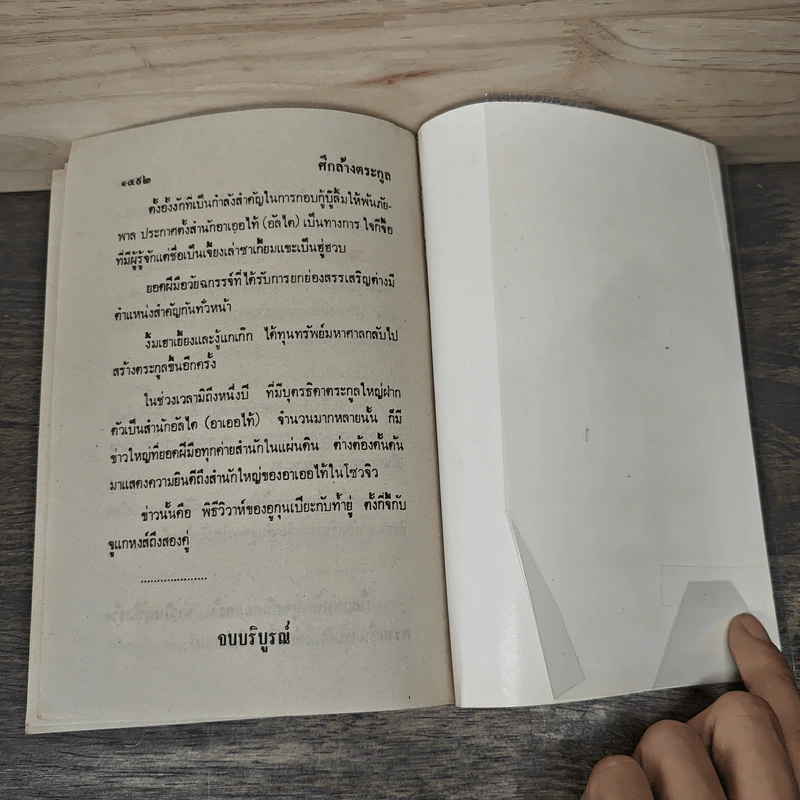 ๑๔๙๒
ศึกล้างตระกูล
ตั้งอั้งงักที่เป็นกำลังสำคัญในการกอบกู้บู๊ลิ้มให้พ้นภัย-
พาล ประกาศตั้งสำนักอาเออไท้ (อัลไต) เป็นทางการ ไจกี่จื้อ
ที่มีผู้รู้จักแต่ชื่อเป็นเจี่ยงเล่าซาเกี้ยมและเป็นฮู่ฮวบ
ยอดฝีมือวัยฉกรรจ์ที่ได้รับการยกย่องสรรเสริญต่างมี
ตำแหน่งสำคัญกันทั่วหน้า
งิ้มเฮาเยี้ยงและงู้แกเก๊ก ได้ทุนทรัพย์มหาศาลกลับไป
สร้างตระกูลขึ้นอีกครั้ง
ในช่วงเวลามิถึงหนึ่งปี ที่มีบุตรธิดาตระกูลใหญ่ฝาก
ตัวเป็นสำนักอัลไต (อาเออไท้) จำนวนมากหลายนั้น ก็มี
ข่าวใหญ่ที่ยอดฝีมือทุกค่ายสำนักในแผ่นดิน ต่างต้องดั้นด้น
มาแสดงความยินดีถึงสำนักใหญ่ของอาเออไท้ในโซวจิว
ข่าวนั้นคือ พิธีวิวาห์ของอูกุนเบี๊ยะกับท้ำยู่ ตั้งกี่จี้กับ
จูแกหงส์ถึงสองคู่
....................
จบบริบูรณ์